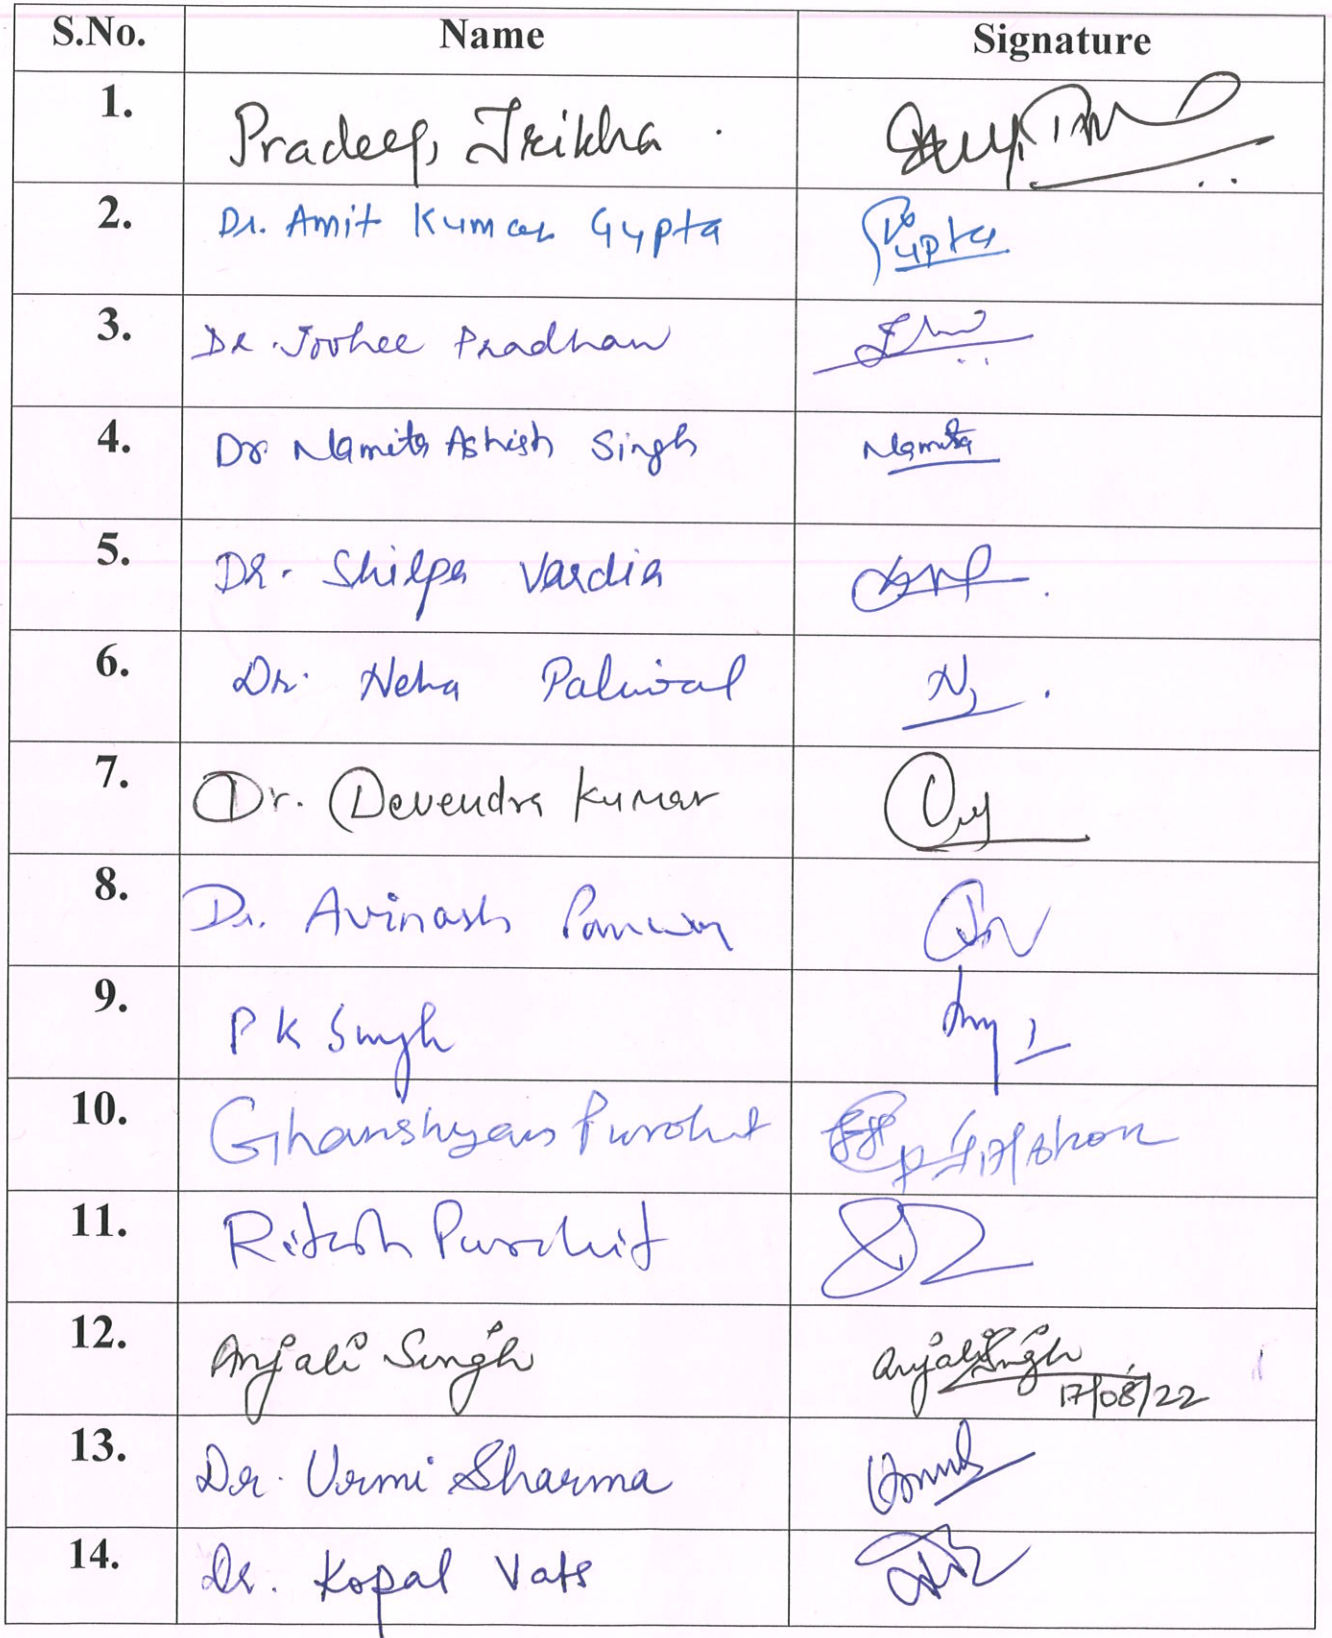 S.No. Name Signature
1. Pradeep Trikha
2. Dr. Amit Kumar Gupta Gupta
3. Dr. Joohee Pradhan
4. Dr Namita Ashish Singh Namita
5. Dr. Shilpa Vardia
6. Dr. Neha Paliwal
7. Dr. Devendra Kumar
8. Dr. Avinash Panwar
9. P K Singh
10. Ghanshyam Purohit
11. Ritesh Purohit
12. Anjali Singh Anjali Singh
17/08/22
13. Dr. Urmi Sharma
14. Dr. Kopal Vats